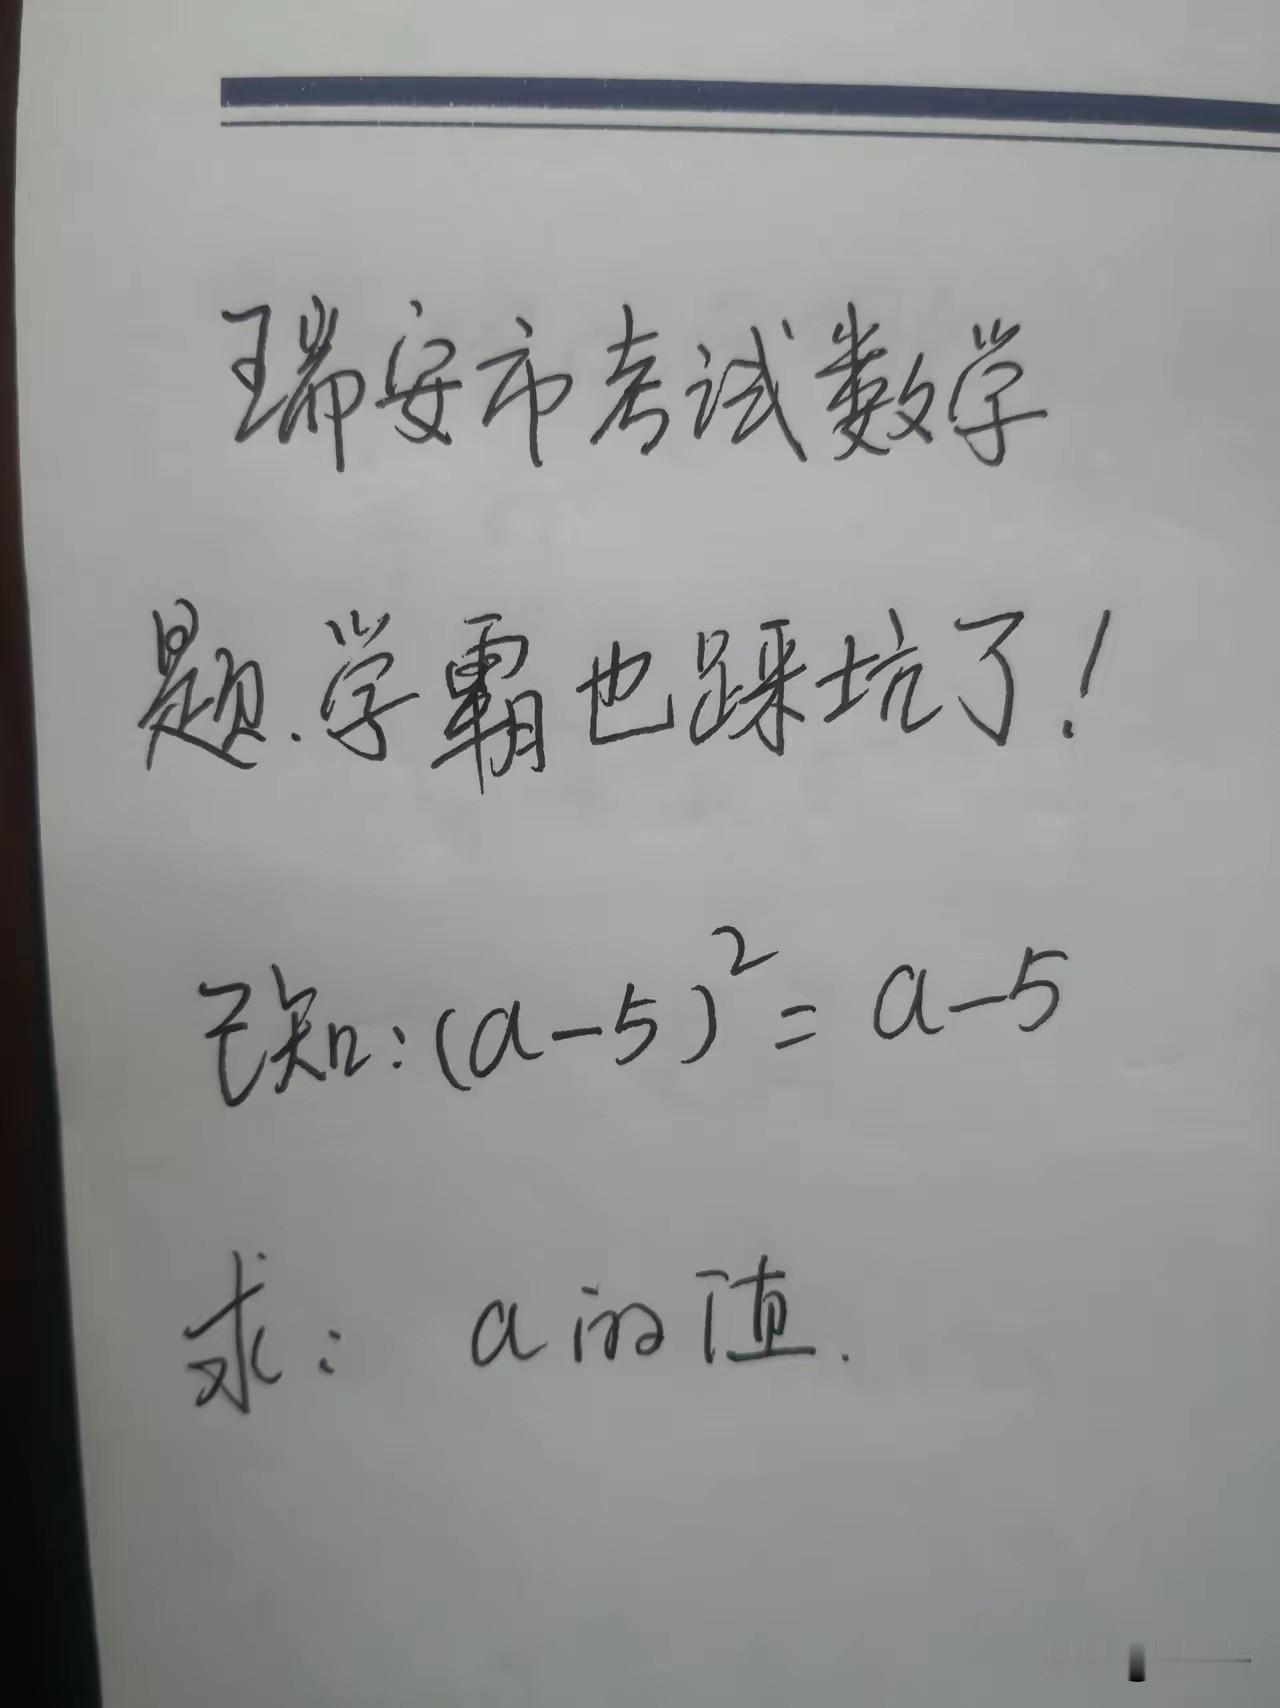 瑞安市考试数学
题.学霸也踩坑了!
已知:(a-5)²=a-5
求: a的值.